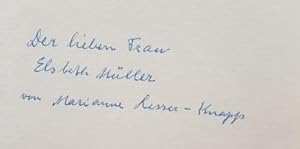 Der lieben Frau
Elsbeth Müller
von Marianne Lesser-Knapp